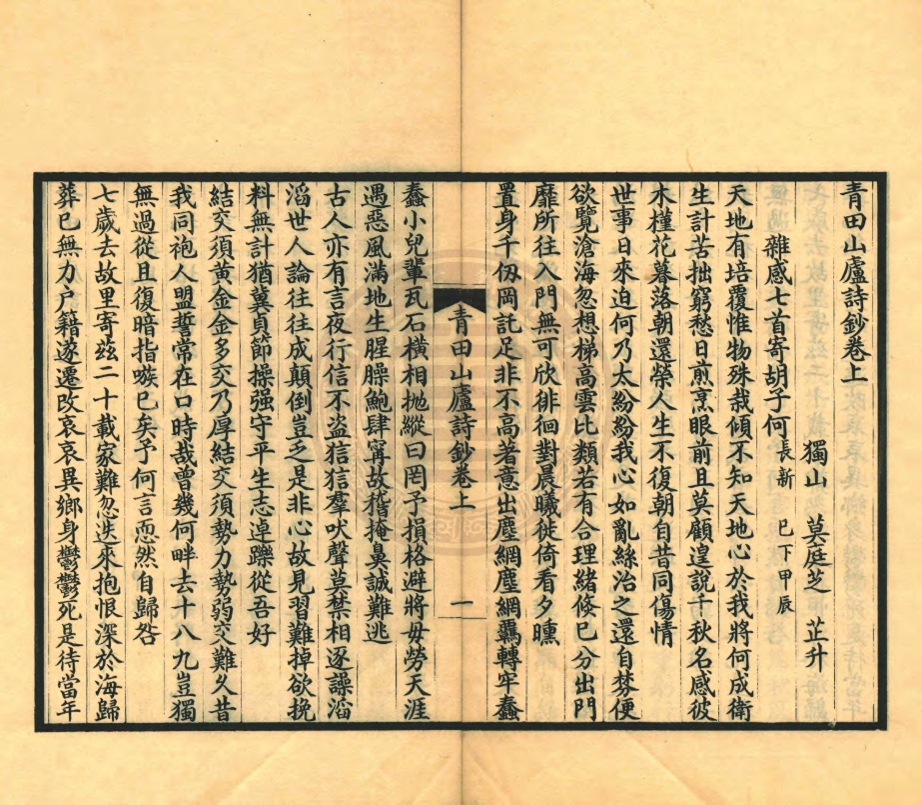 青田山廬詩鈔卷上
獨山 莫庭芝 芷升
雜感七首寄胡子何長新 巳下甲辰
天地有培覆惟物殊栽傾不知天地心於我將何成衛
生計苦拙窮愁日煎烹眼前且莫顧遑說千秋名感彼
木槿花暮落朝還榮人生不復朝自昔同傷情
世事日來迫何乃太紛紛我心如亂絲治之還自棼便
欲覽滄海忽想梯高雲比類若有合理緒倏已分出門
靡所往入門無可欣徘徊對晨曦徙倚看夕曛
置身千仞岡託足非不高著意出塵網塵網羈轉牢蠢
青田山廬詩鈔卷上 一
蠢小兒輩瓦石橫相拋縱曰罔予損格避將毋勞天涯
遇惡風滿地生腥臊鮑肆甯故稽掩臭誠難逃
古人亦有言夜行信不盜狺狺羣吠聲莫禁相逐譟滔
滔世人論往往成顛倒豈乏是非心故見習難掉欲挽
料無計猶冀貞節操强守平生志逴躒從吾好
結交須黃金金多交乃厚結交須勢力勢弱交難久昔
我同袍人盟誓常在口時哉曾幾何畔去十八九豈獨
無過從且復暗指嗾已矣予何言恧然自歸咎
七歲去故里寄茲二十載家難忽迭來抱恨深於海歸
葬已無力戶籍遂遷改哀哀異鄉身鬱鬱死是待當年